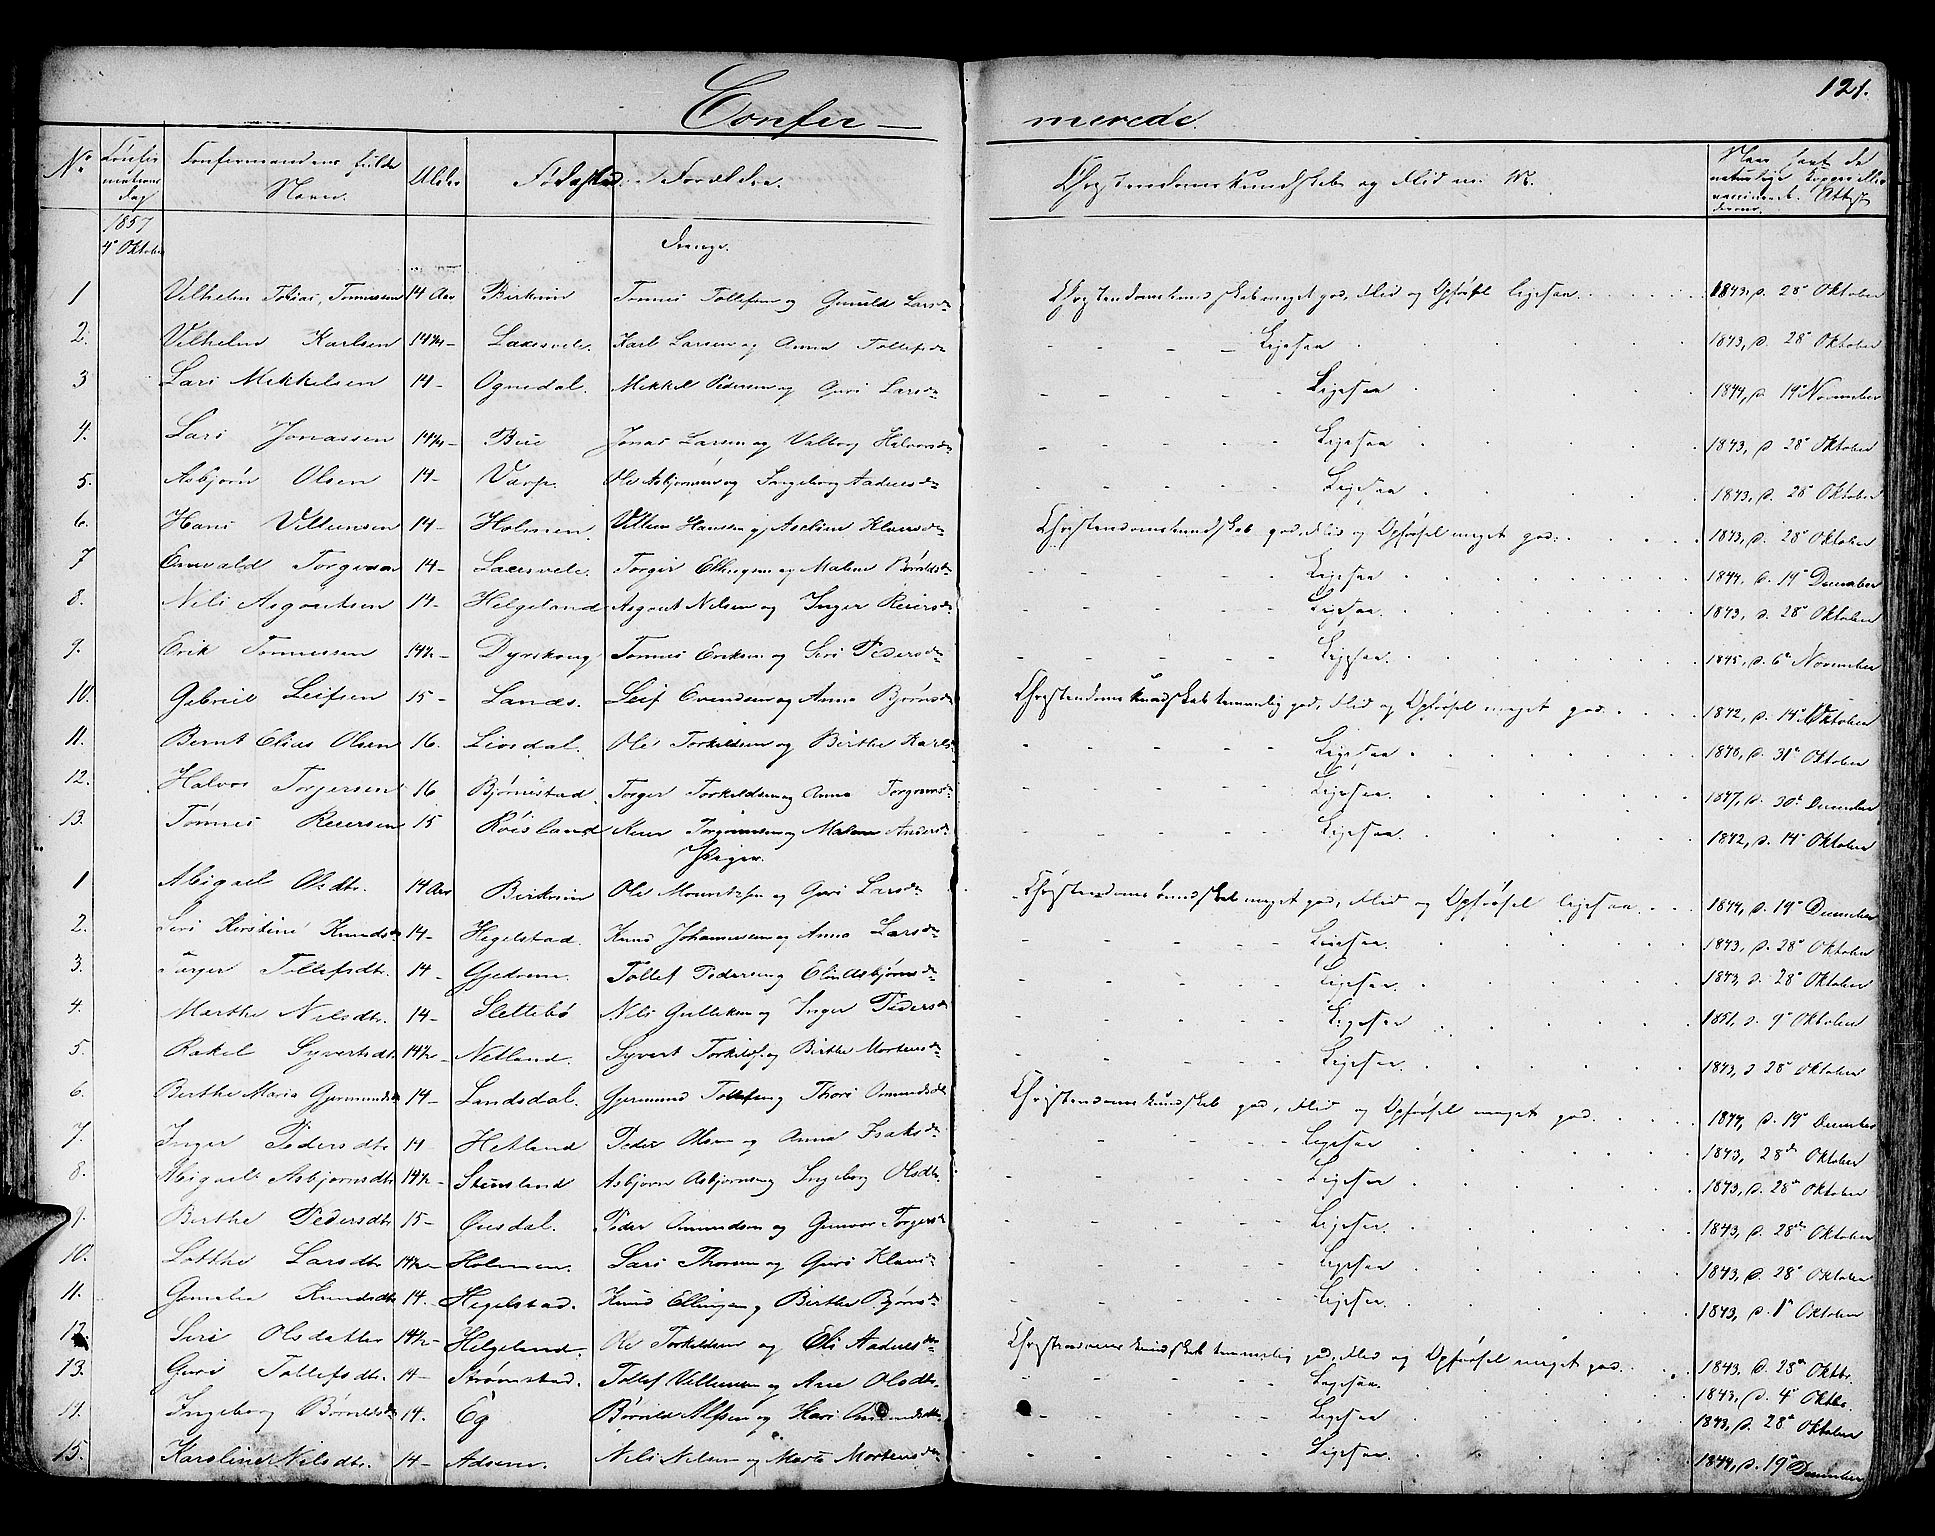 121.
Confir- merede.
No Confirmations Dag Confirmandens fulde Navn. Alder Fødested. Forældre. Christendomskundskab og Flid m. M. Naar havt de naturlige Kopper eller vaccinerede. Attest
1857
4de Oktober
Drenge.
1 Vilhelm Tobias Tønnessen 14 Aar Birkrem Tønnes Tollefsen og Gunild Larsdtr Christendomskundskab meget god, Flid og Opførsel ligesaa 1843, d. 28de Oktober
2. Vilhelm Karlsen 14½- Laxesvele. Karl Larsen og Anna Tollefsdtr - - - - Ligesaa 1843, d. 28de Oktober
3 Lars Mikkelsen 14- Ognedal. Mikkel Pedersen og Guri Larsdtr - - - - - Ligesaa 1844, d. 19de November
4. Lars Jonassen 14½- Bue Jonas Larsen og Valborg Halvorsdtr - - - - - Ligesaa 1843, d. 28de Oktober
5. Asbjørn Olsen 14- Varp. Ole Asbjørnsen og Ingeborg Aadnesdtr - - - - - Ligesaa 1843, d. 28de Oktober
6. Hans Villumsen 14- Holmen. Villum Hansen og Klausdtr Christendomskundskab god, Flid og Opførsel meget god. 1843, d. 28de Oktober
7 Osvald Torgersen 14- Laxesvele. Torger Ellingsen og Malene Børildsdtr - - - - - Ligesaa 1844, d. 19de December
8. Nils Asgautsen 14- Helgeland Asgaut Nilsen og Inger Reiersdtr - - - - - Ligesaa. 1843, d. 28de Oktober
9. Erik Tønnessen 14½- Dyrskoug Tønnes Eriksen og Siri Pedersdtr - - - - - Ligesaa. 1845, d. 6te November
10. Gabriel Leifsen 15- Sandes. Leif Evendsen og Anna Bjørnsdtr Christendomskundskab temmelig god, Flid og Opførsel meget god. 1842, d. 14de Oktober
11. Bernt Elias Olsen 16. Livsdal. Ole Torkildsen og Birthe Karlsdtr - - - - - Ligesaa 1840, d. 31de Oktober
12. Halvor Torgersen 16 Bjørnestad. Torger Torkildsen og Anna Torgrimsdtr - - - - - Ligesaa. 1847, d. 30te December
13. Tønnes Reiersen 15 Røisland Reier Torgrimsen og Malene Andersdtr - - - - - Ligesaa. 1842, d. 14de Oktober
Piger.
1 Abigael Olsdtr. 14 Aar Birkrem Ole Mouritzsen og Guri Larsdtr Christendomskundskab meget god, Flid og Opførsel ligesaa. 1844, d. 19de December
2. Siri Kirstine Knudsdtr 14- Hegelstad. Knud Johannessen og Anna Larsdtr - - - - - Ligesaa. 1843, d. 28de Oktober
3. Torger Tollefsdtr. 14- Gjedrem. Tollef Pedersen og Asbjørnsdtr - - - - - Ligesaa. 1843, d. 28de Oktober
4. Marthe Nilsdtr. 14- Slettebø Nils Gulliksen og Inger Pedersdtr - - - - - Ligesaa 1851, d. 9de Oktober
5. Rakel Syvertsdtr 14½- Netland. Syvert Torkilds. og Birthe Mortensdtr - - - - - Ligesaa. 1843, d 28de Oktober
6. Berthe Maria Gjermundsdtr 14- Landsdal. Gjermund Tollefsen og Thori Omundsdtr Christendomskundskab god, Flid og Opførsel meget god. 1844, d. 19de December
7. Inger Pedersdtr. 14 Hetland Peder Olsen og Anna Isaksdtr - - - - - Ligesaa 1843, 28de Oktober
8. Abigael Asbjørnsdtr 14½- Stensland Asbjørn Asbjørnsen og Ingeborg Olsdtr. - - - - - Ligesaa 1843, d. 28de Oktober
9. Berthe Pedersdtr 15- Øvsdal. Peder Omundsen og Gunvor Torgersdtr - - - - - Ligesaa. 1843, d. 28de Oktober
10. Lotthe Larsdtr. 14½- Holmen. Lars Thorsen og Guri Klausdtr - - - - - Ligesaa 1843, d. 28de Oktober
11. Gunelia Knudsdtr 14. Hegelstad. Knud Ellingsen og Birthe Bjørnsdtr - - - - - Ligesaa. 1843, d. 1de Oktober
12. Siri Olsdatter 14½- Helgeland. Ole Torkildsen og Eli Aadnesdtr Christendomskundskab temmelig god, Flid og Opførsel meget god. 1843, d. 28de Oktbr.
13. Guri Tollefsdtr. 14- Strømstad. Tollef Villumsen og Ane Olsdtr. - - - - - Ligesaa. 1843, d. 4de Oktbr.
14. Ingeborg Børildsdtr 14. Eg Børild Alfsen og Kari Omundsdtr - - - - - Ligesaa 1843, d. 28de Oktober
15. Karoline Nilsdtr. 14- Adsem. Nils Nilsen og Marte Mortensdtr - - - - - Ligesaa. 1844, d. 19de December